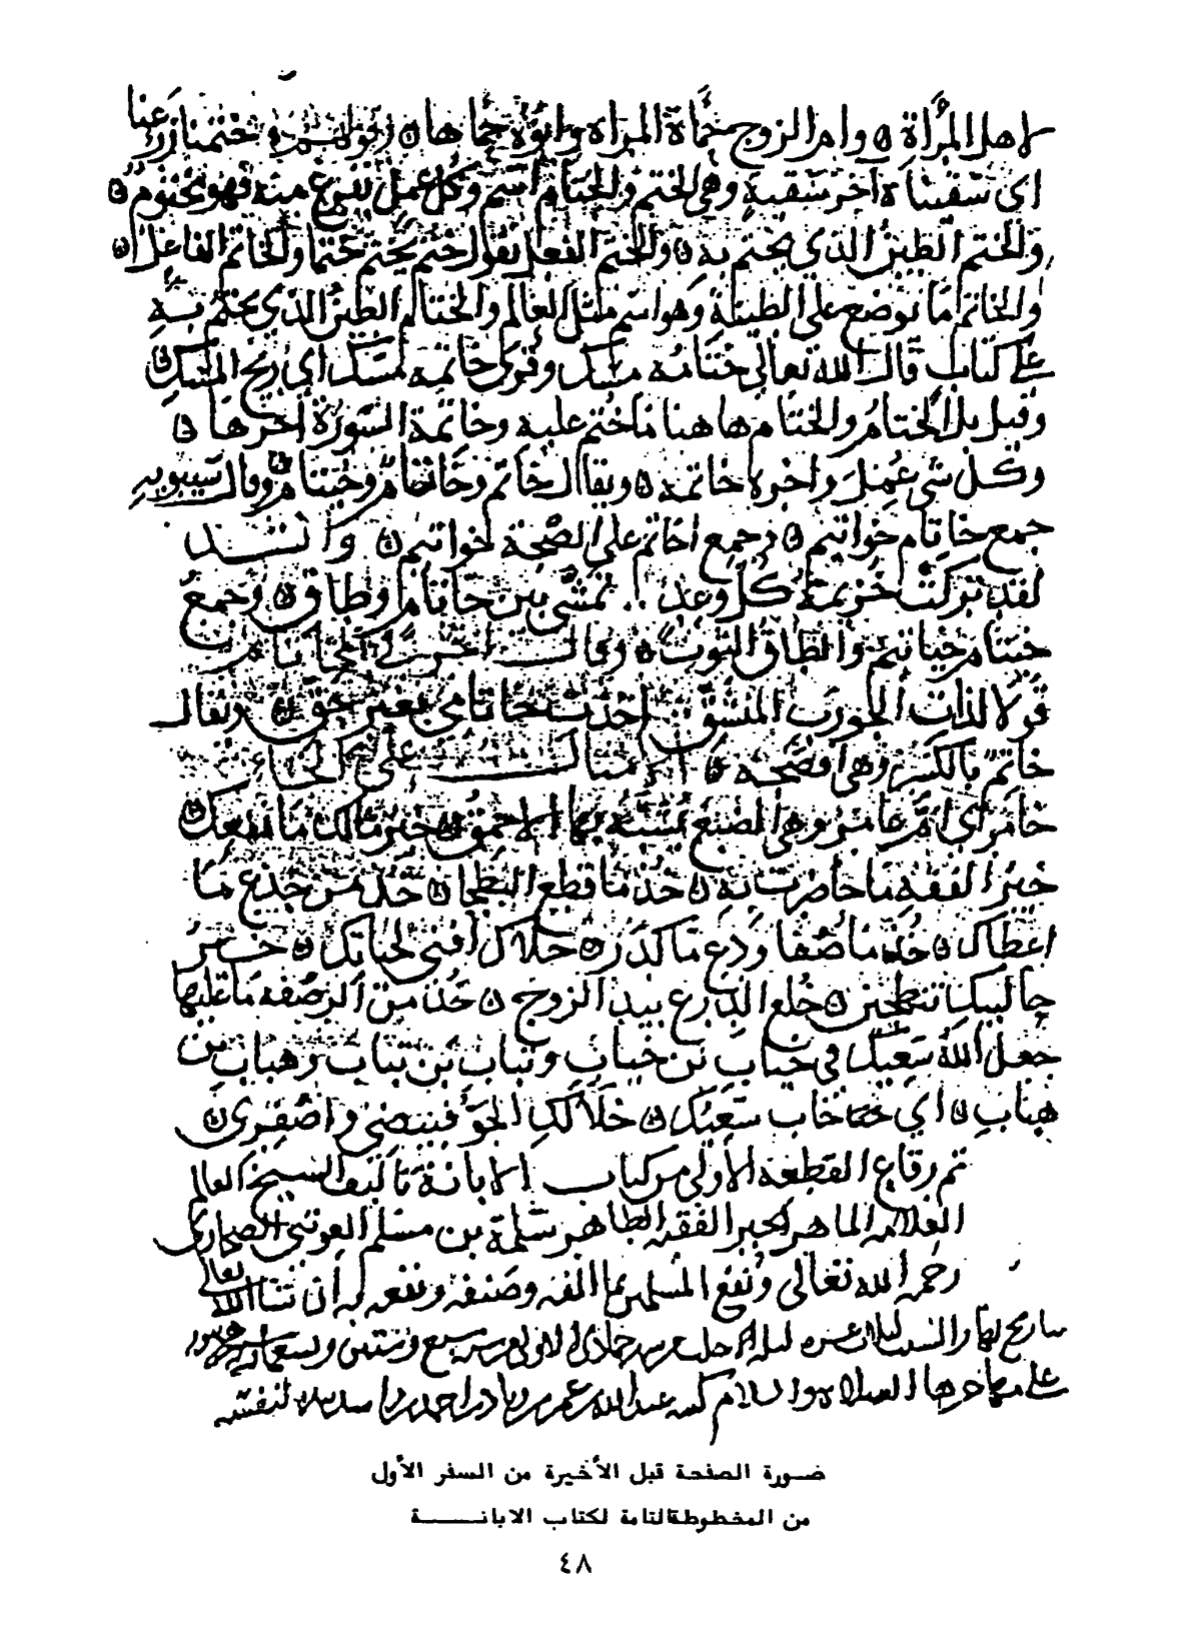 لاهل المرأة ٥ وام الزوج حماة المراة وابوه حماها ٥ ختمنا زرعنا
اي سقيناه آخر سقية وهي الختم والختام اسم وكل عمل تفرغ منه فهو مختوم ٥
والختم الطين الذي يختم به ٥ والختم الفعل تقول ختم يختم ختما والخاتم الفاعل ٥
والخاتم ما توضع على الطينة وهو اسم مثل العالم والختام الطين الذي يختم به
على كتاب قال الله تعالى ختامه مسك وقرى خاتمه مسك اي ريح المسك ٥
وقيل بل الختام والختام هاهنا ما ختم عليه وخاتمة السورة آخرها ٥
وكل شي عمل واخره خاتمه ٥ ويقال خاتم وخاتام وخيتام ٥ وقال سيبويه
جمع خاتام خواتيم ٥ وجمع خاتم على الصحة خواتم ٥ وانشد
لقد تركت خزيمة كل وغد ∴ تمشى بين خاتام وطاق ٥ وجمع
خيتام خياتيم والطاق الثوب ٥ وقال آخر في الخاتام
قولا لذات الجورب المنشق اخذت خاتامي بغير حق ٥ ويقال
خاتم بالكسر وهي افصحه ٥ على الخاء
خامري ام عامر وهي الضبع يشبه بها الاحمق ٥ خير مالك ما نفعك ٥
خير الفقه ما حاضرت به ٥ خذ ما قطع البطحا ٥ خذ من جذع ما
اعطاك ٥ خذ ما صفا ودع ما كدر ٥ خلاك افنى لحياتك ٥ خير
حالبيك تنطحين ٥ خلع الدرع بيد الزوج ٥ خذ من الرضفة ما عليها
جعل الله سعيك في خياب بن خياب وتباب بن تباب وهباب بن
هباب ٥ اي خاب سعيك ٥ خلا لك الجو فبيضي واصفري ٥
تم رقاع القطعة الأولى من كتاب الابانة تاليف الشيخ العالم
العلامة الماهر الحبر الفقه الطاهر سلمة بن مسلم العوتبي الصحاري
رحمه الله تعالى ونفع المسلمين بما الفه وصنفه ونفعه به ان شا الله تعالى
نهار السبت جمادى الاولى سبع وستين وتسعماية
على مهاجرها الصلاة والسلام كتبه عبدالله بن عمر بن زياد بن احمد بن لنفسه
صورة الصفحة قبل الأخيرة من السفر الأول
من المخطوطة التامة لكتاب الابانــــــة
٤٨